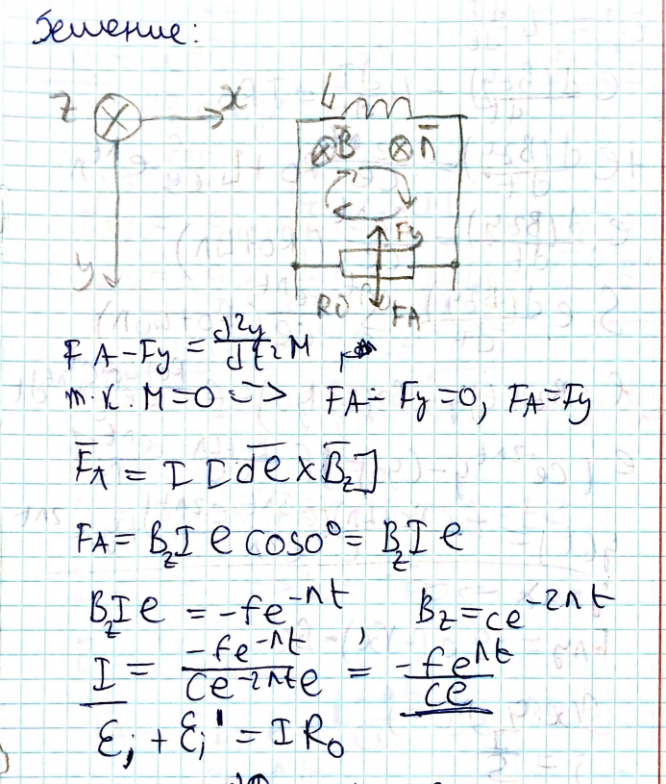 Решение:
Z x
L
B̄ n̄
y
Fy
R0 FA
FA - Fy = d²y/dt² M
т.к. M=0 => FA - Fy = 0, FA = Fy
F̄A = I [d̄e × B̄z]
FA = BzI e cos0° = BzI e
BzI e = -fe^-nt , Bz = ce^-2nt
I = -fe^-nt / ce^-2nt e = -fe^nt / ce
Ɛi + Ɛi' = IR0